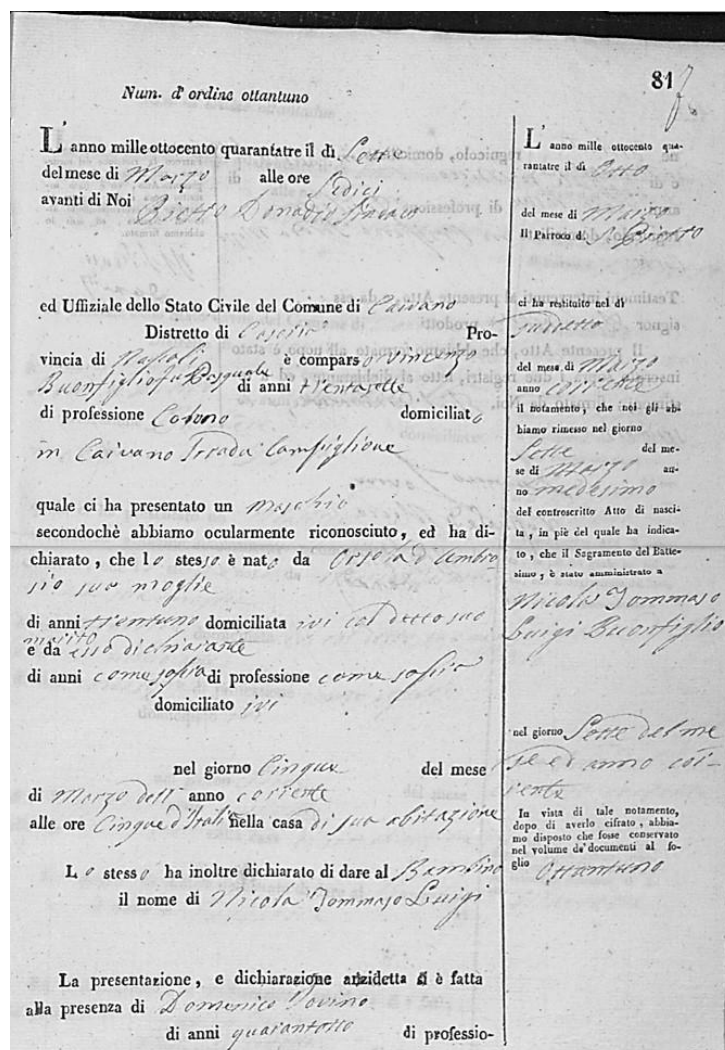 81
Num. d'ordine ottantuno
L'anno mille ottocento quarantatre il dì Sette
del mese di Marzo alle ore Sedici
avanti di Noi
ed Uffiziale dello Stato Civile del Comune di Caivano
Distretto di Casoria Pro-
vincia di Napoli è comparso Vincenzo
Buonfiglio fu Pasquale di anni trentasette
di professione domiciliato
in Caivano Strada Campiglione
quale ci ha presentato un maschio
secondochè abbiamo ocularmente riconosciuto, ed ha di-
chiarato, che lo stesso è nato da Orsola d'Ambro
sio sua moglie
di anni trentuno domiciliata ivi col detto suo
marito
e da esso dichiarante
di anni come sopra di professione come sopra
domiciliato ivi
nel giorno Cinque del mese
di Marzo dell' anno corrente
alle ore Cinque d'Italia nella casa di sua abitazione
Lo stesso ha inoltre dichiarato di dare al Bambino
il nome di Nicola Tommaso Luigi
La presentazione, e dichiarazione anzidetta si è fatta
alla presenza di Domenico
di anni quarantotto di professio-
L'anno mille ottocento qua-
rantatre il dì Otto
del mese di Marzo
Il Parroco d. S. Pietro
ci ha restituito nel dì
del mese di Marzo
anno corrente
il notamento, che noi gli ab-
biamo rimesso nel giorno
Sette del me-
se di Marzo an-
no medesimo
del controscritto Atto di nasci-
ta, in piè del quale ha indica-
to, che il Sagramento del Batte-
simo, è stato amministrato a
Nicola Tommaso
Luigi Buonfiglio
nel giorno Sette del me
se ed anno cor-
rente
In vista di tale notamento,
dopo di averlo cifrato, abbia-
mo disposto che fosse conservato
nel volume de' documenti al fo-
glio Ottantuno